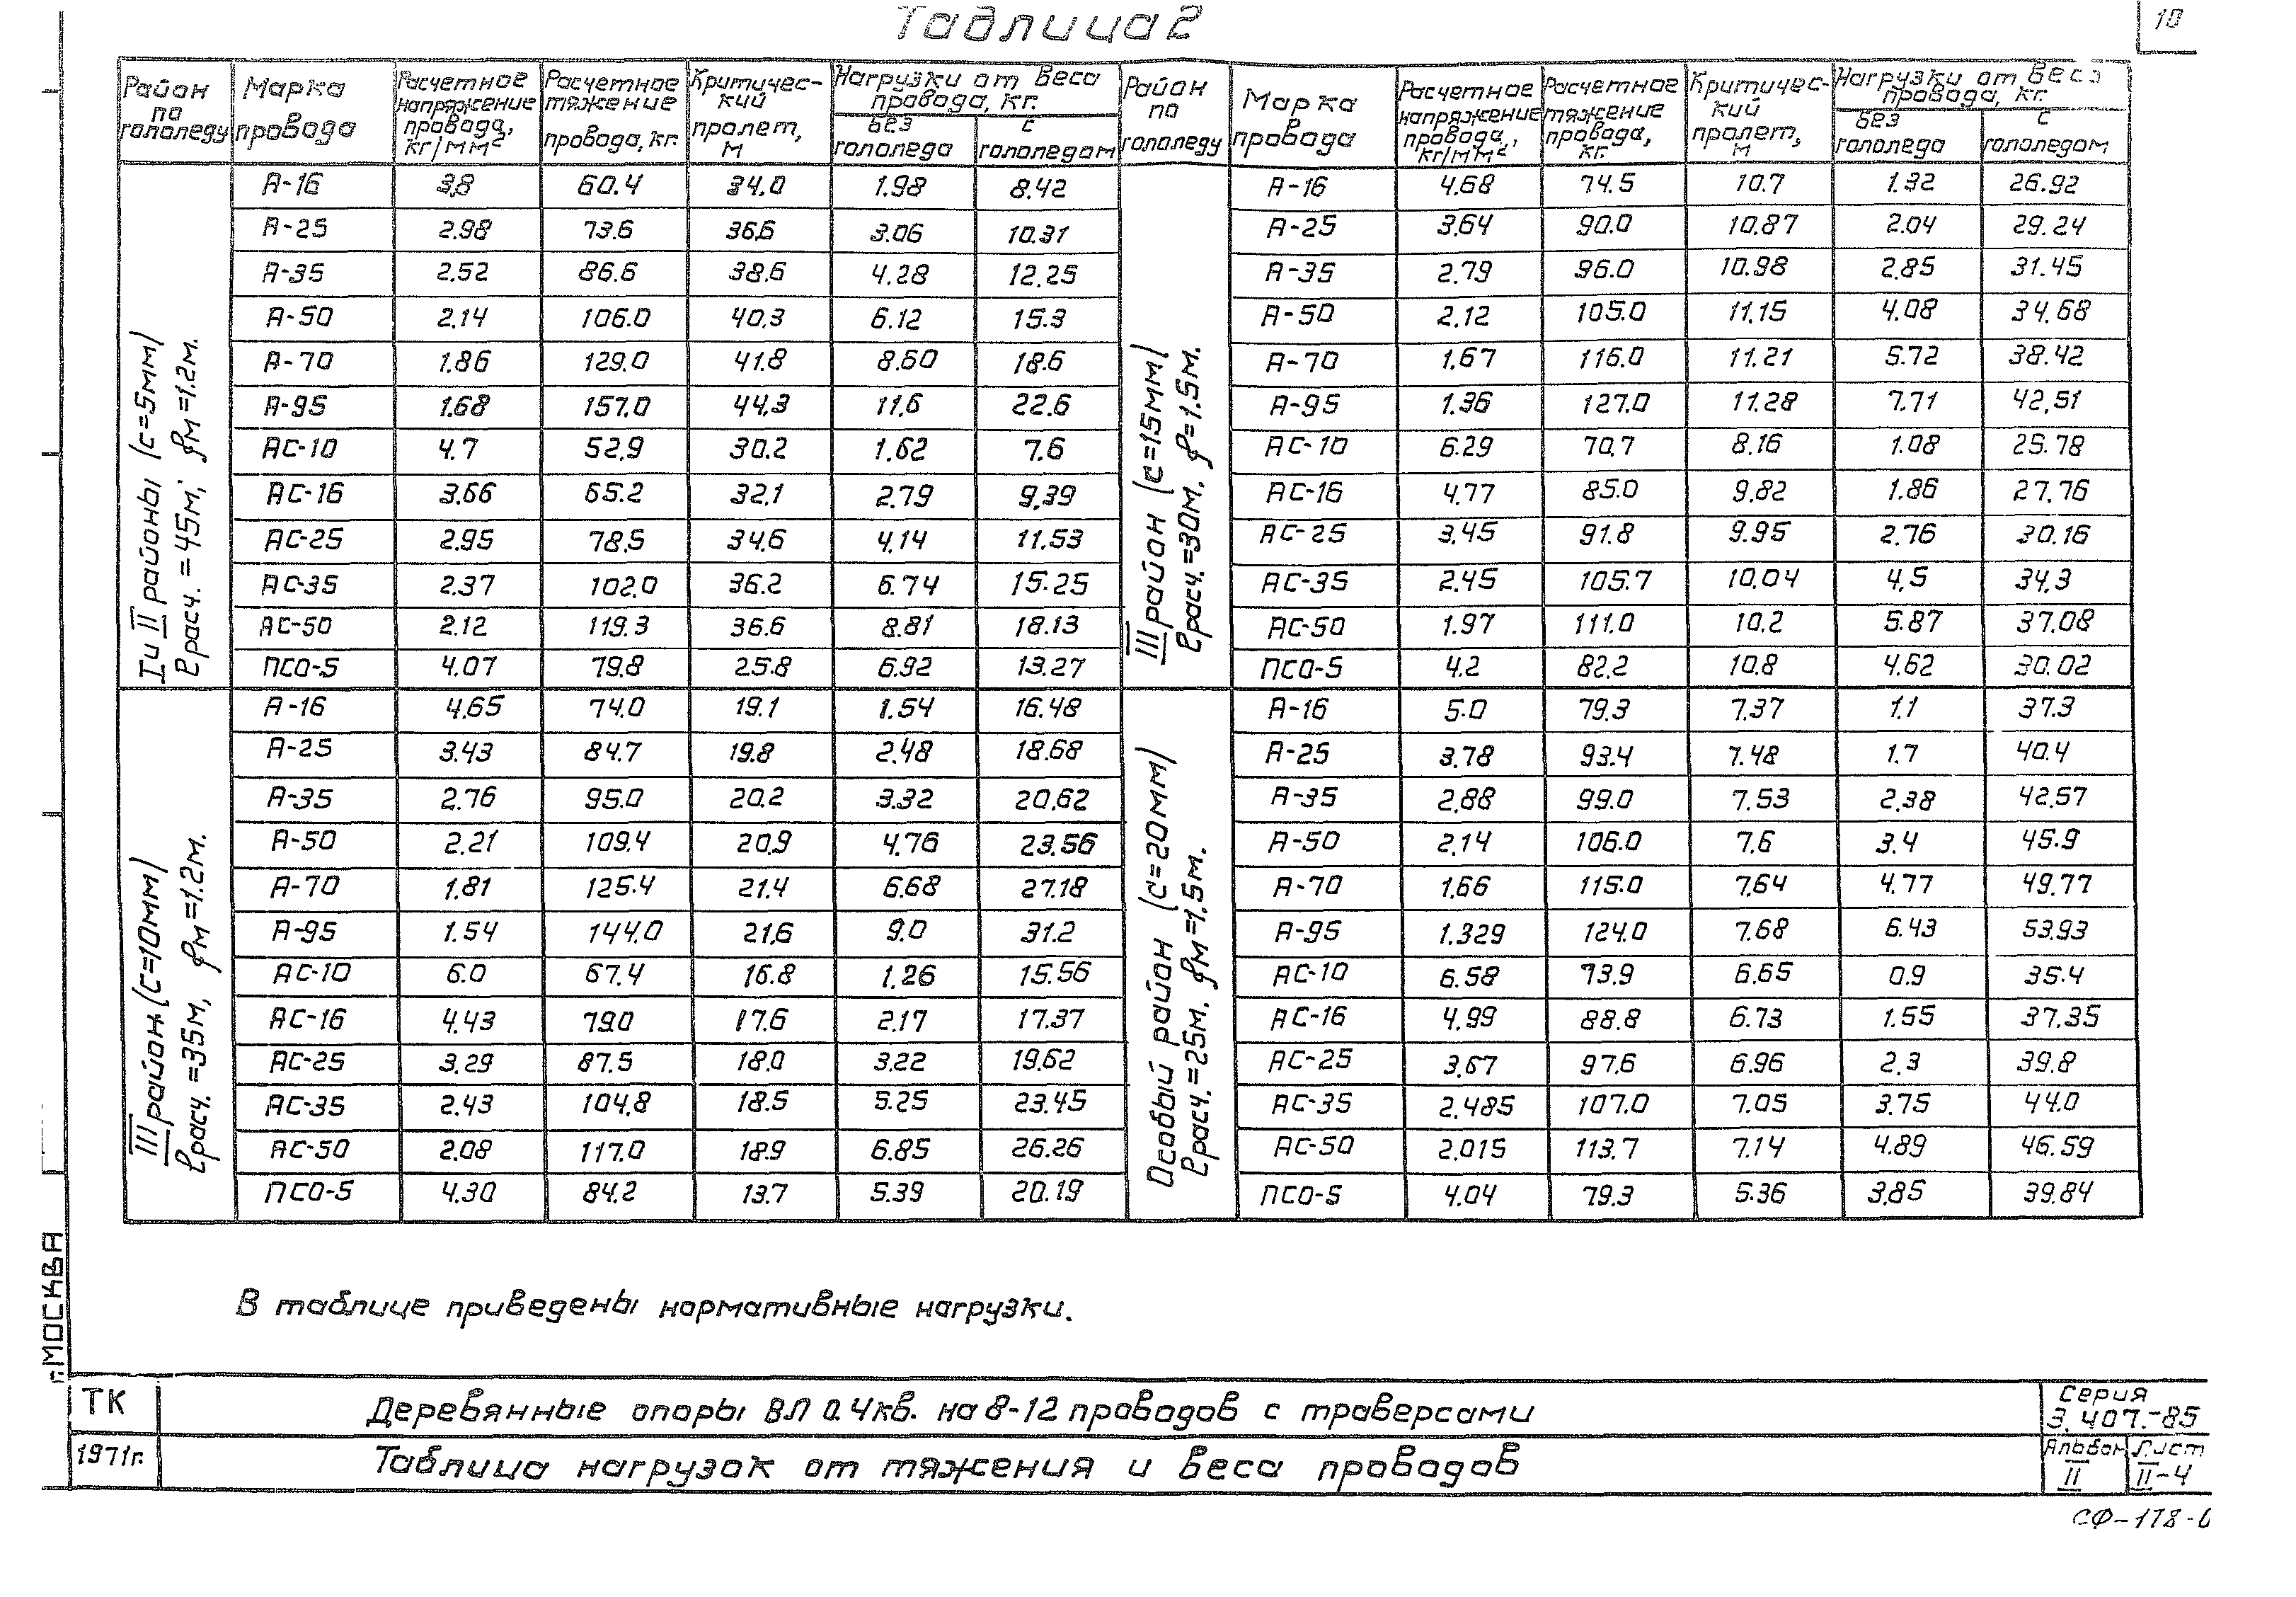 Таблица 2
10
Район по гололеду | Марка провода | Расчетное напряжение провода, кг/мм² | Расчетное тяжение провода, кг. | Критический пролет, м | Нагрузки от веса провода, кг. без гололеда | с гололедом
I и II районы (c=5мм) ℓрасч. = 45м; fм=1.2м.
А-16 3,8 60.4 34.0 1.98 8.42
А-25 2.98 73.6 36,6 3.06 10.31
А-35 2.52 86.6 38.6 4.28 12.25
А-50 2.14 106.0 40.3 6.12 15.3
А-70 1.86 129.0 41.8 8.60 18.6
А-95 1.68 157.0 44.3 11.6 22.6
АС-10 4.7 52.9 30.2 1.62 7.6
АС-16 3.66 65.2 32.1 2.79 9.39
АС-25 2.95 78.5 34.6 4.14 11.53
АС-35 2.37 102.0 36.2 6.74 15.25
АС-50 2.12 119.3 36.6 8.81 18.13
ПСО-5 4.07 79.8 25.8 6.92 13.27
III район (c=10мм) ℓрасч. =35м, fм=1.2м.
А-16 4.65 74.0 19.1 1.54 16.48
А-25 3.43 84.7 19.8 2.48 18.68
А-35 2.76 95.0 20.2 3.32 20.62
А-50 2.21 109.4 20.9 4.76 23.56
А-70 1.81 125.4 21.4 6.68 27.18
А-95 1.54 144.0 21.6 9.0 31.2
АС-10 6.0 67.4 16.8 1.26 15.56
АС-16 4.43 79.0 17.6 2.17 17.37
АС-25 3.29 87.5 18.0 3.22 19.62
АС-35 2.43 104.8 18.5 5.25 23.45
АС-50 2.08 117.0 18.9 6.85 26.26
ПСО-5 4.30 84.2 13.7 5.39 20.19
Район по гололеду | Марка провода | Расчетное напряжение провода, кг/мм² | Расчетное тяжение провода, кг. | Критический пролет, м | Нагрузки от веса провода, кг. без гололеда | с гололедом
III район (c=15мм) ℓрасч.=30м, f=1.5м.
А-16 4.68 74.5 10.7 1.32 26.92
А-25 3.64 90.0 10.87 2.04 29.24
А-35 2.79 96.0 10.98 2.85 31.45
А-50 2.12 105.0 11.15 4.08 34.68
А-70 1.67 116.0 11.21 5.72 38.42
А-95 1.36 127.0 11.28 7.71 42.51
АС-10 6.29 70.7 8.16 1.08 25.78
АС-16 4.77 85.0 9.82 1.86 27.76
АС-25 3.45 91.8 9.95 2.76 30.16
АС-35 2.45 105.7 10.04 4.5 34.3
АС-50 1.97 111.0 10.2 5.87 37.08
ПСО-5 4.2 82.2 10.8 4.62 30.02
Особый район (c=20мм) ℓрасч.=25м. fм=1.5м.
А-16 5.0 79.3 7.37 1.1 37.3
А-25 3.78 93.4 7.48 1.7 40.4
А-35 2.88 99.0 7.53 2.38 42.57
А-50 2.14 106.0 7.6 3.4 45.9
А-70 1.66 115.0 7.64 4.77 49.77
А-95 1.329 124.0 7.68 6.43 53.93
АС-10 6.58 73.9 6.65 0.9 35.4
АС-16 4.99 88.8 6.73 1.55 37.35
АС-25 3.67 97.6 6.96 2.3 39.8
АС-35 2.485 107.0 7.05 3.75 44.0
АС-50 2.015 113.7 7.14 4.89 46.59
ПСО-5 4.04 79.3 5.36 3.85 39.84
В таблице приведены нормативные нагрузки.
г. МОСКВА
ТК
1971г.
Деревянные опоры ВЛ 0.4кв. на 8-12 проводов с траверсами
Таблица нагрузок от тяжения и веса проводов
Серия
3.407.-85
Альбом Лист
II II-4
СФ-178-